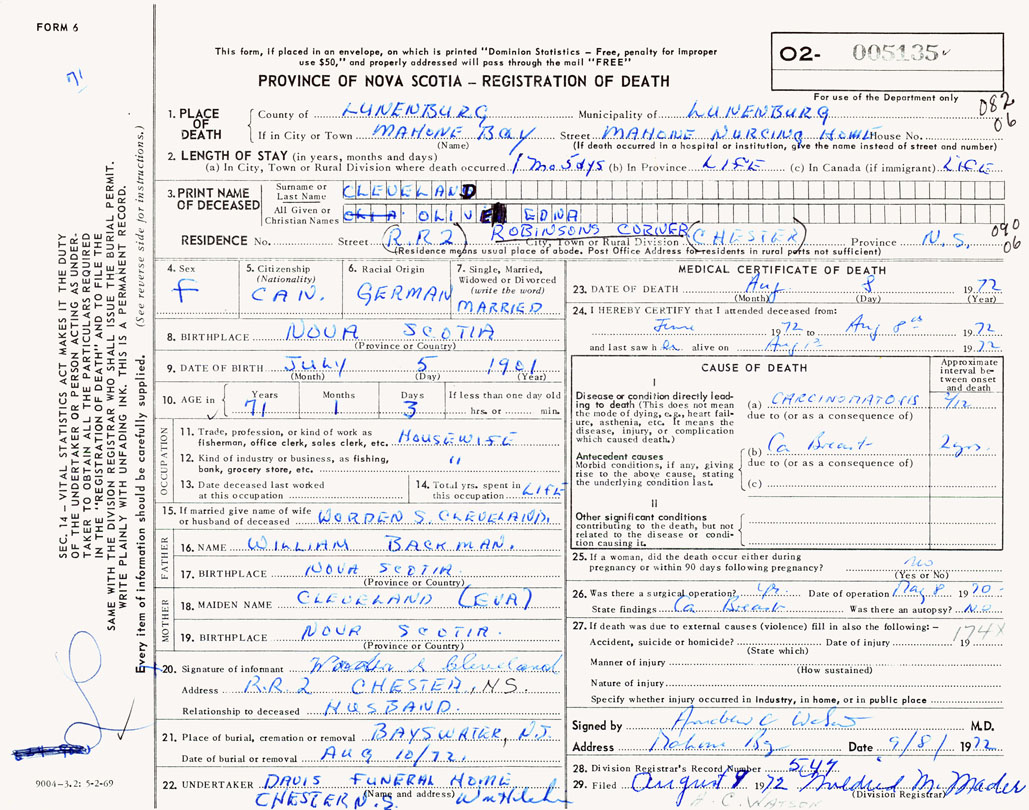 FORM 6
71
This form, if placed in an envelope, on which is printed "Dominion Statistics – Free, penalty for improper
use $50," and properly addressed will pass through the mail "FREE"
PROVINCE OF NOVA SCOTIA – REGISTRATION OF DEATH
O2- 005135
For use of the Department only
082
06
1. PLACE OF DEATH
County of LUNENBURG Municipality of LUNENBURG
If in City or Town MAHONE BAY Street MAHONE NURCING HOME House No.
(Name) (If death occurred in a hospital or institution, give the name instead of street and number)
2. LENGTH OF STAY (in years, months and days)
(a) In City, Town or Rural Division where death occurred 1 mo 5 dys (b) In Province LIFE (c) In Canada (if immigrant) LIFE
3. PRINT NAME OF DECEASED
Surname or Last Name CLEVELAND
All Given or Christian Names OLIVE EDNA
RESIDENCE No. Street R.R 2 ROBINSONS CORNER CHESTER Province N.S.
City, Town or Rural Division
(Residence means usual place of abode. Post Office Address for residents in rural parts not sufficient)
090
06
4. Sex F
5. Citizenship (Nationality) CAN.
6. Racial Origin GERMAN
7. Single, Married, Widowed or Divorced (write the word) MARRIED
8. BIRTHPLACE NOVA SCOTIA
(Province or Country)
9. DATE OF BIRTH JULY 5 1901
(Month) (Day) (Year)
10. AGE in Years 71 Months 1 Days 3 If less than one day old hrs. or min.
OCCUPATION
11. Trade, profession, or kind of work as fisherman, office clerk, sales clerk, etc. HOUSEWIFE
12. Kind of industry or business, as fishing, bank, grocery store, etc. "
13. Date deceased last worked at this occupation
14. Total yrs. spent in this occupation LIFE
15. If married give name of wife or husband of deceased WORDEN S. CLEVELAND.
FATHER
16. NAME WILLIAM BACKMAN.
17. BIRTHPLACE NOVA SCOTIA
(Province or Country)
MOTHER
18. MAIDEN NAME CLEVELAND (EVA)
19. BIRTHPLACE NOVA SCOTIA.
(Province or Country)
20. Signature of informant Worden S Cleveland
Address R.R. 2 CHESTER, N.S.
Relationship to deceased HUSBAND.
21. Place of burial, cremation or removal BAYSWATER, N.S.
Date of burial or removal AUG 10/72.
22. UNDERTAKER DAVIS FUNERAL HOME
(Name and address)
CHESTER N.S.
MEDICAL CERTIFICATE OF DEATH
23. DATE OF DEATH Aug 8 1972
(Month) (Day) (Year)
24. I HEREBY CERTIFY that I attended deceased from:
June 1972 to Aug 8th 1972
and last saw her alive on Aug 1972
CAUSE OF DEATH
Approximate interval between onset and death
I
Disease or condition directly leading to death (This does not mean the mode of dying, e.g., heart failure, asthenia, etc. It means the disease, injury, or complication which caused death.)
(a) CARCINOMATOSIS 2/12
due to (or as a consequence of)
Antecedent causes
Morbid conditions, if any, giving rise to the above cause, stating the underlying condition last.
(b) Ca Breast 2 yrs.
due to (or as a consequence of)
(c)
II
Other significant conditions contributing to the death, but not related to the disease or condition causing it.
25. If a woman, did the death occur either during
pregnancy or within 90 days following pregnancy? no
(Yes or No)
26. Was there a surgical operation? yes Date of operation May 8 1970
State findings Ca Breast Was there an autopsy? NO
27. If death was due to external causes (violence) fill in also the following: –
174X
Accident, suicide or homicide? Date of injury 19
(State which)
Manner of injury
(How sustained)
Nature of injury
Specify whether injury occurred in Industry, in home, or in public place
Signed by M.D.
Address Mahone Bay Date 9/8/1972
28. Division Registrar's Record Number 547
29. Filed August 9 1972 Mildred M. Mader
(Division Registrar)
A. C. WATSON
SEC. 14 – VITAL STATISTICS ACT MAKES IT THE DUTY
OF THE UNDERTAKER OR PERSON ACTING AS UNDER-
TAKER TO OBTAIN ALL THE PARTICULARS REQUIRED
IN THE "REGISTRATION OF DEATH" AND TO FILE THE
SAME WITH THE DIVISION REGISTRAR WHO SHALL ISSUE THE BURIAL PERMIT.
WRITE PLAINLY WITH UNFADING INK. THIS IS A PERMANENT RECORD.
Every item of information should be carefully supplied. (See reverse side for instructions.)
9004-3.2: 5-2-69